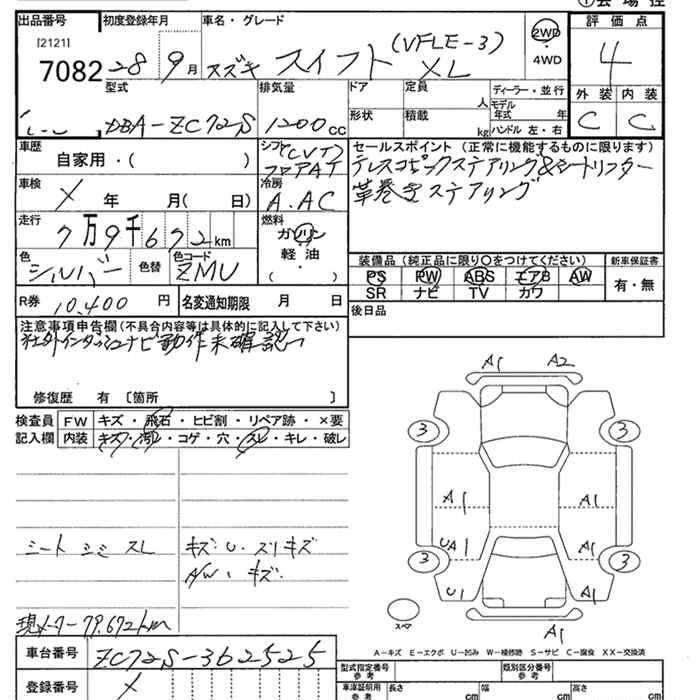 ①会場控
出品番号 初度登録年月 車名・グレード 評価点
[2121]
7082 28 9月 スズキ スイフト (VFLE-3) XL 2WD・4WD 4
型式 排気量 ドア 定員 人 ディーラー・並行 外装 内装
DBA-ZC72S 1200cc 形状 積載 kg モデル年式 年 ハンドル 左・右 C C
車歴 自家用・( ) シフト (CVT) フロアAT セールスポイント (正常に機能するものに限ります)
テレスコピックステアリング&シートリフター
革巻きステアリング
車検 X 年 月( 日) 冷房 A.AC
走行 7万9千672km 燃料 ガソリン・軽油・( )
色 シルバー 色替 色コード ZMU
装備品 (純正品に限り○をつけてください) 新車保証書
PS PW ABS エアB AW 有・無
SR ナビ TV カワ
R券 10,400円 名変通知期限 月 日 後日品
注意事項申告欄 (不具合内容等は具体的に記入して下さい)
社外インダッシュナビ動作未確認
修復歴 有 〔箇所 〕
検査員 FW キズ・飛石・ヒビ割・リペア跡・×要
記入欄 内装 キズ・汚レ・コゲ・穴・スレ・キレ・破レ
A1 A2
3 3
A1 A1
UA1 A1
3 3
U1 A1
スペア A1
シート シミ スレ キズ・U・スリキズ
A/W・キズ・
現メーター79,672km
A−キズ E−エクボ U−凹み W−補修跡 S−サビ C−腐食 XX−交換済
車台番号 ZC72S-362525
登録番号 X
型式指定番号 参考 類別区分番号 参考
車庫証明用 参考 長さ cm 幅 cm 高さ cm